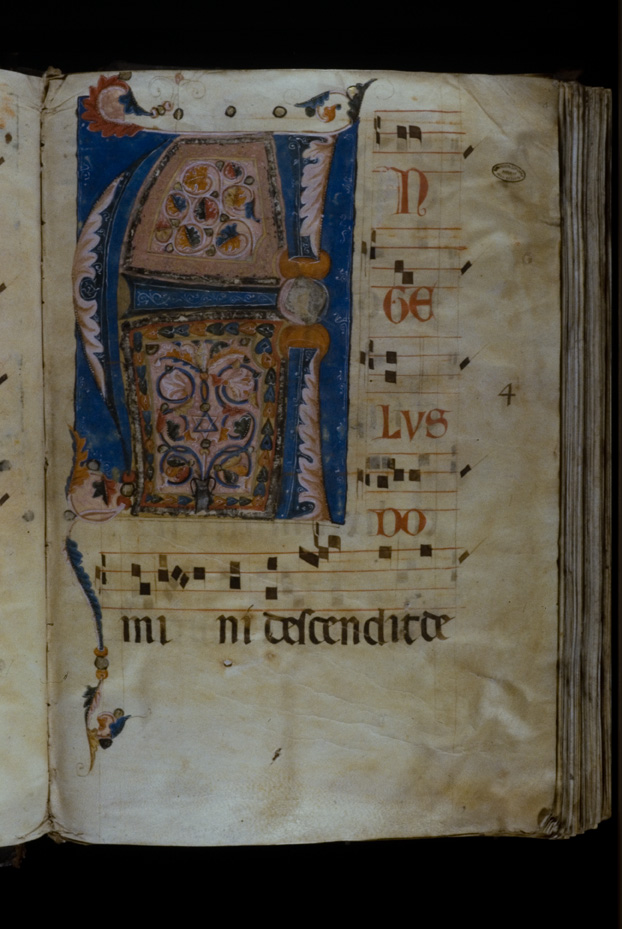 A
N
GE
LVS
DO
mi ni descendit de
4